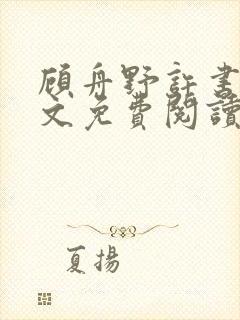 顾舟野許書
文免費閱讀
夏揚